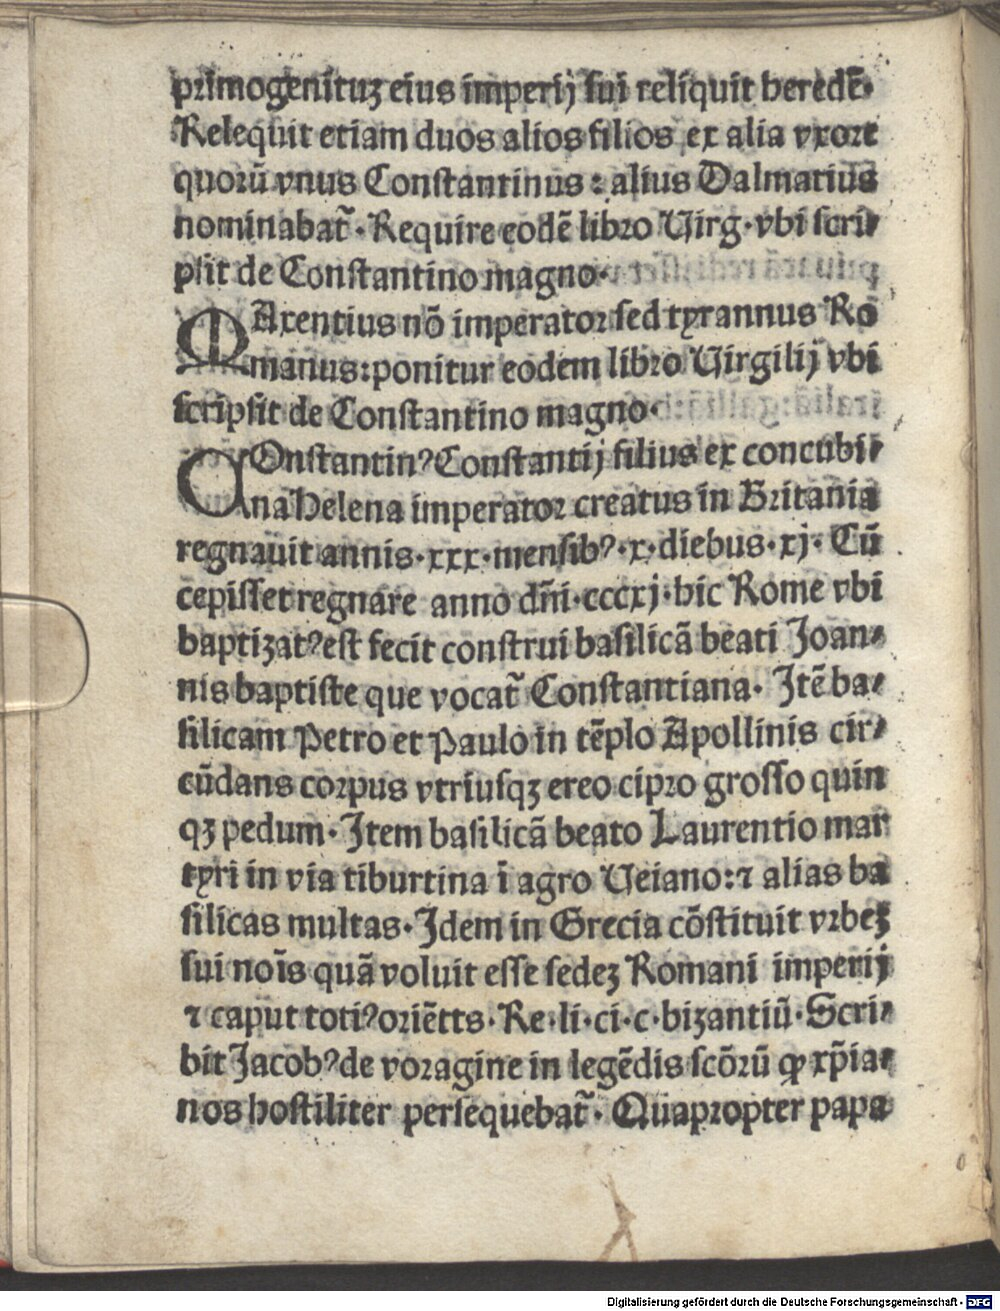 primogenituʒ eius imperij sui reliquit heredē.
Relequit etiam duos alios filios ex alia vxore
quorū vnus Constantinus : alius Dalmatius
nominabat̃ . Require eodē libro Uirg . vbi scri⸗
psit de Constantino magno.
MAxentius nō imperator sed tyrannus Ro
manus:ponitur eodem libro Uirgilij vbi
scripsit de Constantino magno.
COnstantinꝰ Constantij filius ex concubi⸗
na Helena imperator creatus in Britania
regnauit annis .xxx. mensibꝰ .x. diebus .xj. Cū
cepisset regnare anno dñi .cccxj. hic Rome vbi
baptizatꝰ est fecit construi basilicā beati Joan⸗
nis baptiste que vocat̃ Constantiana. Jtē ba⸗
silicam Petro et Paulo in tēplo Apollinis cir⸗
cūdans corpus vtriusqʒ ereo cipro grosso quin
qʒ pedum. Jtem basilicā beato Laurentio mar
tyri in via tiburtina ī agro Ueiano:⁊ alias ba
silicas multas. Jdem in Grecia cōstituit vrbeʒ
sui noīs quā voluit esse sedeʒ Romani imperij
⁊ caput totiꝰ oriētts. Re.li.ci.c.bizantiū. Scri⸗
bit Jacobꝰ de voragine in legēdis scōrū ꝙ xp̄ia⸗
nos hostiliter persequebat̃. Quapropter papa
Digitalisierung gefördert durch die Deutsche Forschungsgemeinschaft - DFG